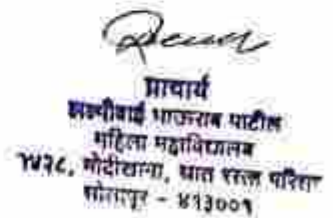 प्राचार्य
लक्ष्मीबाई भाऊराव पाटील
महिला महाविद्यालय
७४२८, मोदीखाना, सात रस्ता परिसर
सोलापूर - ४१३००१